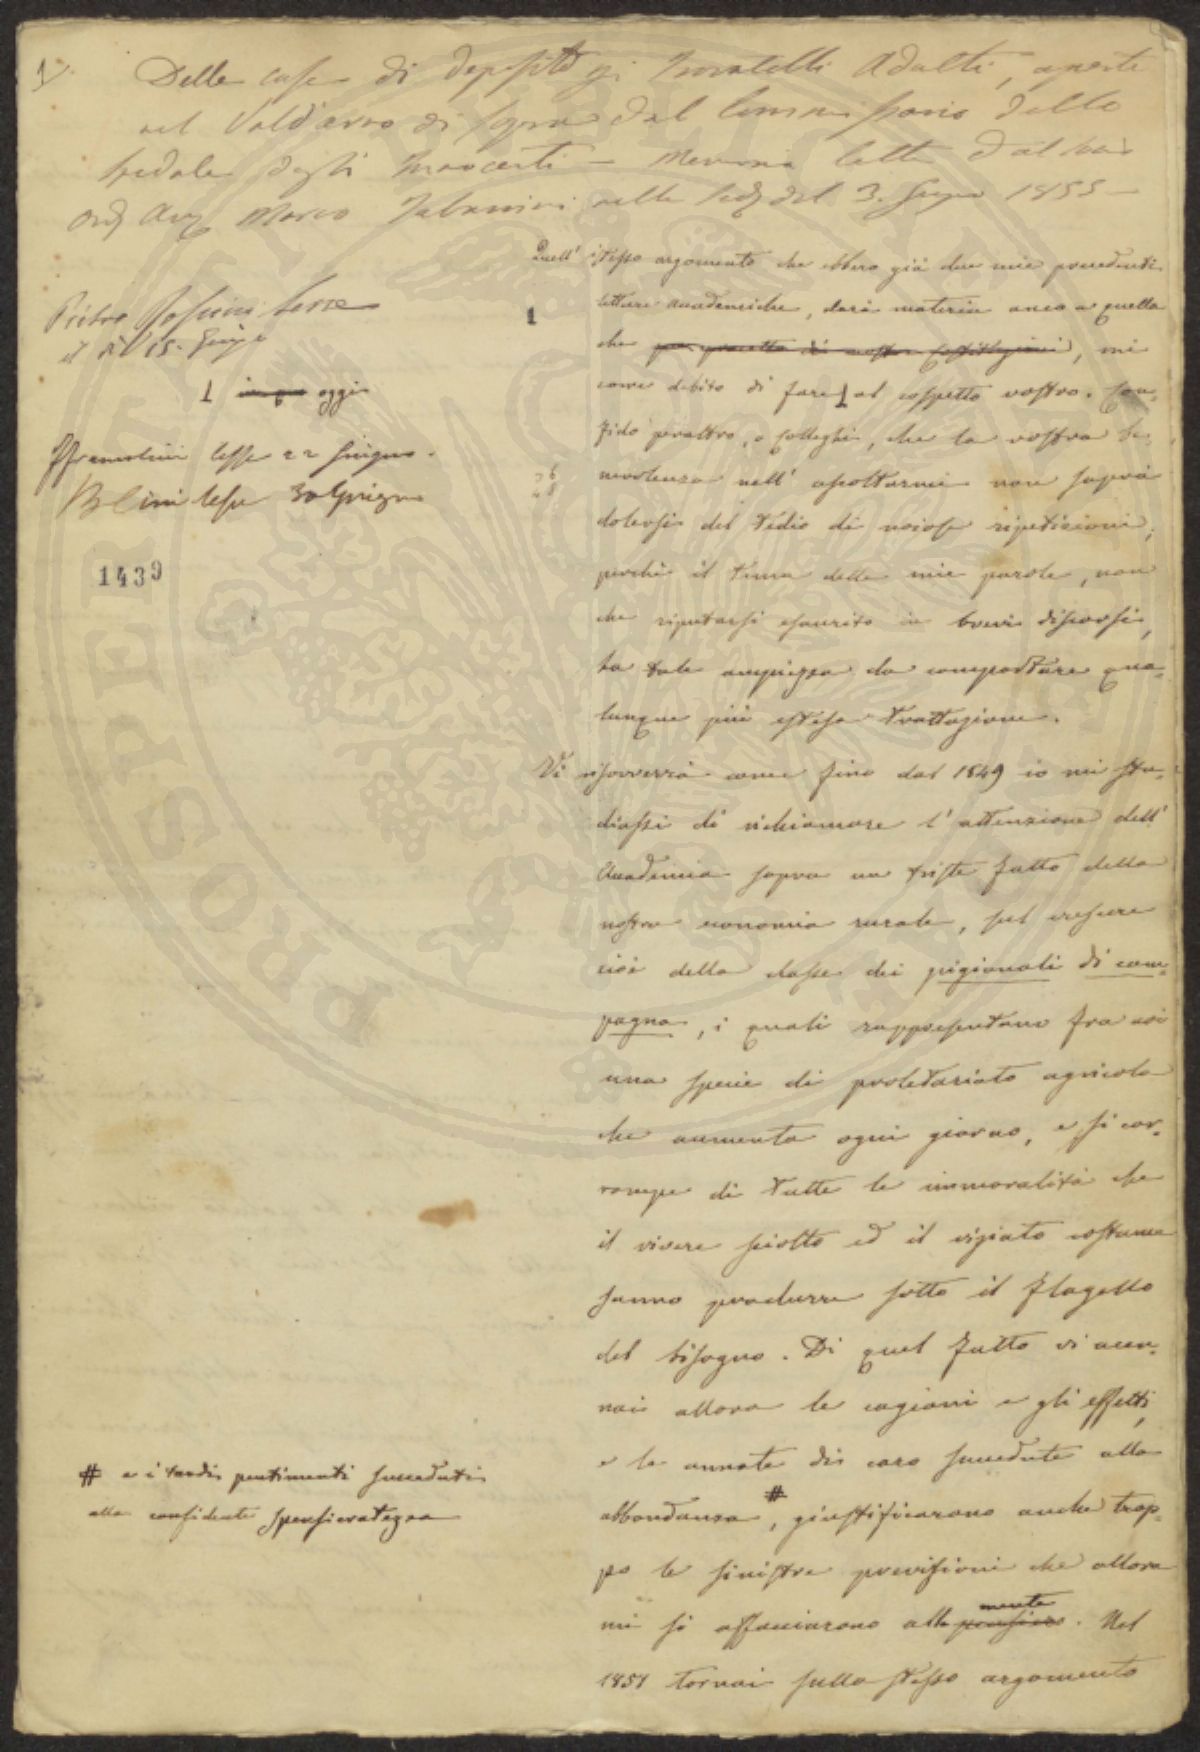 1
Delle case di deposito pei Trovatelli Adulti, aperte
nel Valdarno di sopra dal Commissario dello
Spedale degli Innocenti – Memoria letta dal socio
Ord. Avv. Marco Tabarrini nella Sed. del 3. Giugno 1855 –
Pietro lesse
il dì 15. Giugno
1 oggi
lesse 22 Giugno.
lesse 30 Giugno
1439
Quell' istesso argomento che ebbero già due mie precedenti
1 letture Accademiche, darà materia anco a quella
che per precetto di nostre Costituzioni, mi
corre debito di fare 1 al cospetto vostro. Con-
fido peraltro, o Colleghi, che la vostra be-
nevolenza nell' ascoltarmi non saprà
dolersi del tedio di noiose ripetizioni,
perchè il tema delle mie parole, non
che riputarsi esaurito in brevi discorsi,
ha tale ampiezza da comportare qua-
lunque più estesa trattazione.
Vi risovverrà come fino dal 1849 io mi stu-
diassi di richiamare l'attenzione dell'
Accademia sopra un triste fatto della
nostra economia rurale, sul crescere
cioè della classe dei pigionali di cam-
pagna, i quali rappresentano fra noi
una specie di proletariato agricola
che aumenta ogni giorno, e si cor-
rompe di tutte le immoralità che
il vivere sciolto ed il viziato costume
sanno produrre sotto il flagello
del bisogno. Di quel fatto vi accen-
nai allora le cagioni e gli effetti,
e le annate di caro succedute alla
abbondanza #, giustificarono anche trop-
po le sinistre previsioni che allora
mi si affacciarono alla pensiero mente. Nel
1851 tornai sullo stesso argomento
# e i tardi pentimenti succeduti
alla confidente spensieratezza